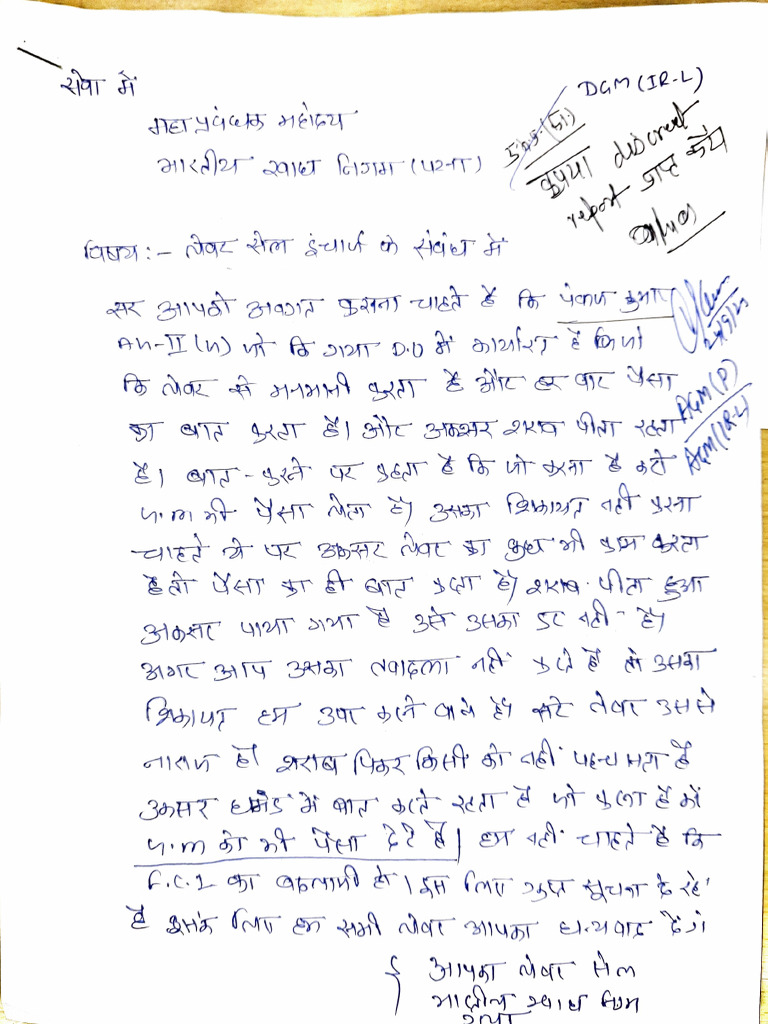 सेवा में
DGM (IR-L)
महाप्रबंधक महोदय
भारतीय खाद्य निगम (पटना)
कृपया discreet
report प्राप्त करें
विषय :- लेबर सेल इंचार्ज के संबंध में
सर आपको अवगत कराना चाहते है कि पंकज कुमार
AM-II (M) जो कि गया D.O में कार्यरत है जो
कि लेबर से मनमानी करता है और हर बार पैसा
का बात करता है। और अक्सर शराब पीता रहता
AGM (P)
AGM (IR-L)
है। बात-करने पर कहता है कि जो करना है करो
G.M भी पैसा लेता है। उसका शिकायत नहीं करना
चाहते थे पर अकसर लेबर का कुछ भी काम करता
है तो पैसा का ही बात करता है। शराब पीता हुआ
अकसर पाया गया है उसे उसका डर नहीं है।
अगर आप उसका तबादला नहीं करते है तो उसका
शिकायत हम उपर करने वाले है। सारे लेबर उससे
नाराज है। शराब पिकर किसी को नहीं पहचानता है
अकसर घमंड में बात करते रहता है जो कहता है की
G.M को भी पैसा देते है। हम नहीं चाहते है कि
F.C.I का बदनामी हो। इस लिए गुप्त सूचना दे रहे
है इसके लिए हम सभी लेबर आपका धन्यवाद देंगे
आपका लेबर सेल
भारतीय खाद्य निगम
गया